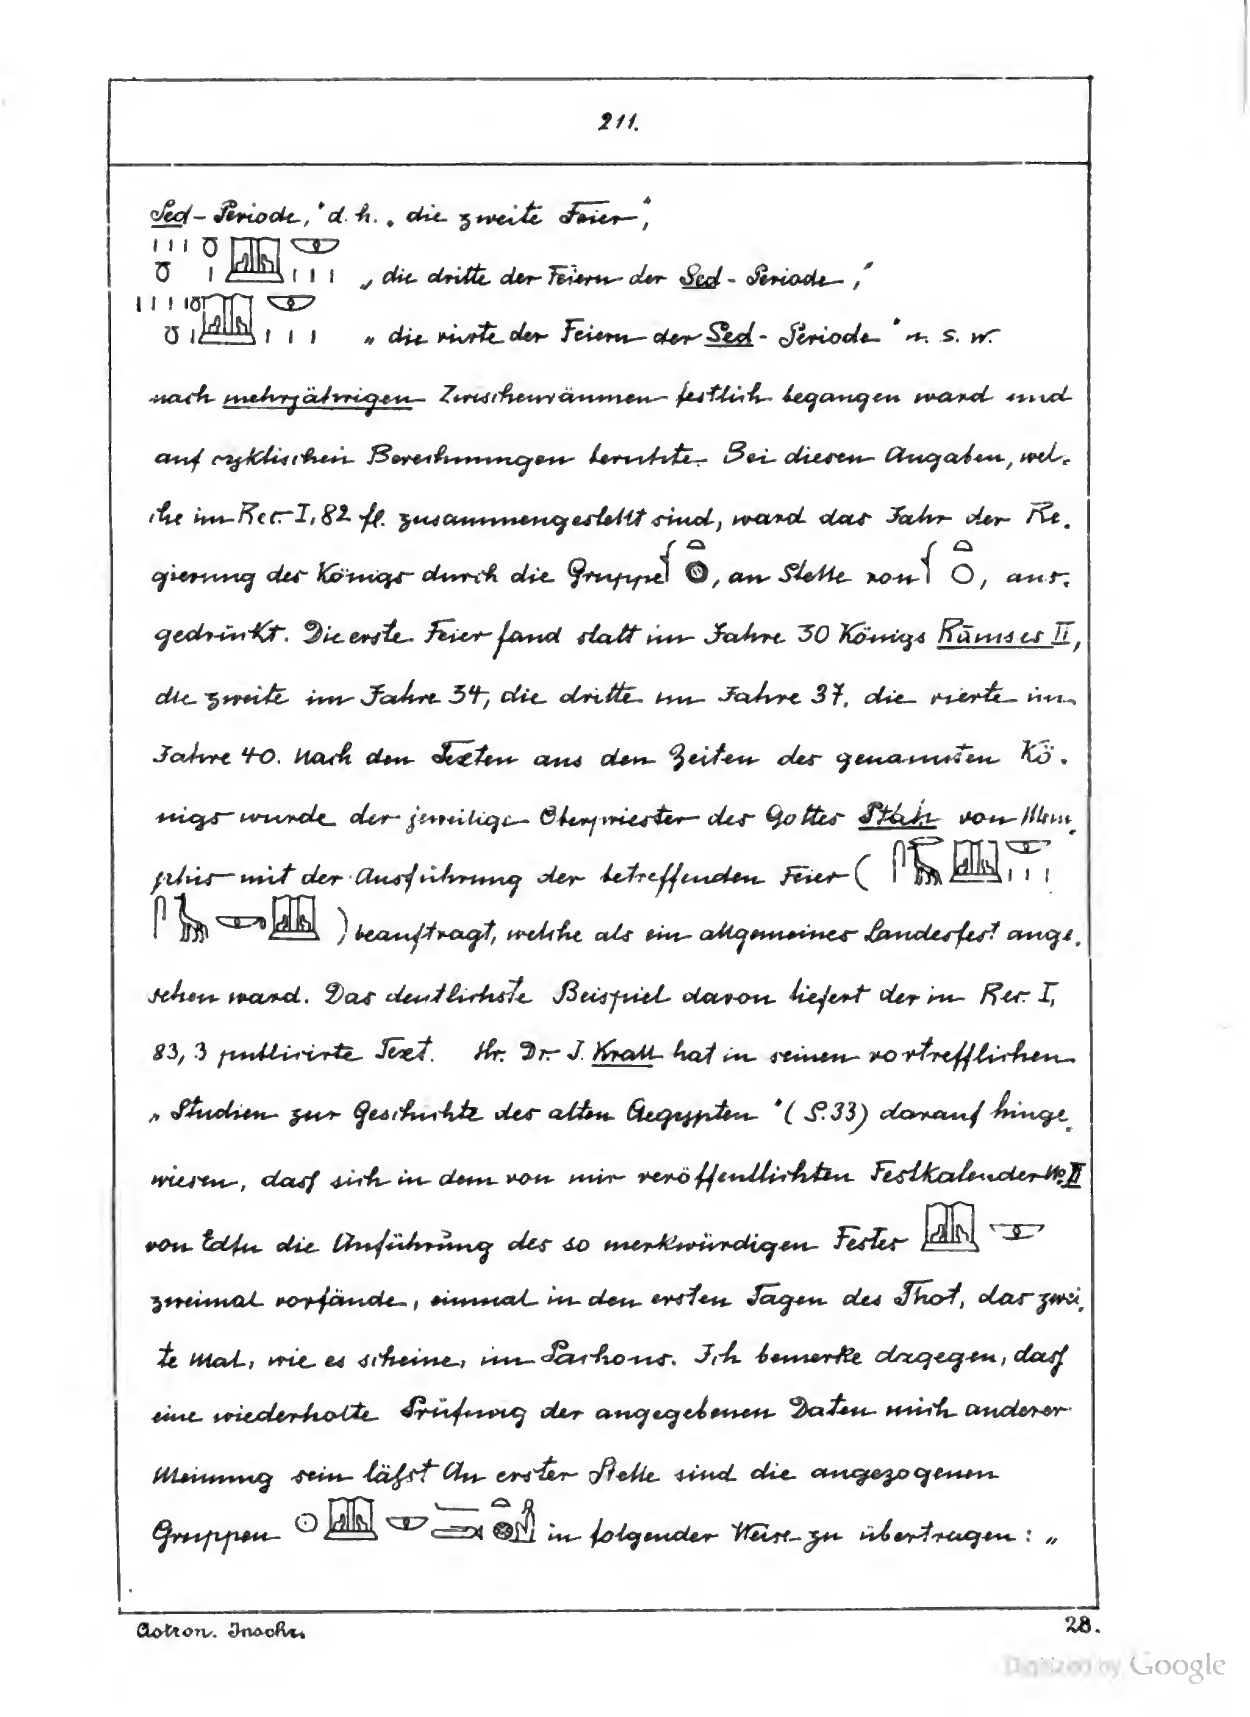 211.
Sed-Periode," d. h. „die zweite Feier",
„die dritte der Feiern der Sed-Periode,"
„die vierte der Feiern der Sed-Periode" u. s. w.
nach mehrjährigen Zwischenräumen festlich begangen ward und
auf cyklischen Berechnungen beruhte. Bei diesen Angaben, wel-
che im Rec. I, 82 fl. zusammengestellt sind, ward das Jahr der Re-
gierung des Königs durch die Gruppe , an Stelle von , aus-
gedrückt. Die erste Feier fand statt im Jahre 30 Königs Rāmses II,
die zweite im Jahre 34, die dritte im Jahre 37, die vierte im
Jahre 40. Nach den Texten aus den Zeiten des genannten Kö-
nigs wurde der jeweilige Oberpriester des Gottes Ptah von Mem-
phis mit der Ausführung der betreffenden Feier (
) beauftragt, welche als ein allgemeines Landesfest ange-
sehen ward. Das deutlichste Beispiel davon liefert der in Rec. I,
83, 3 publicirte Text. Hr. Dr. J. Krall hat in seinen vortrefflichen
„Studien zur Geschichte des alten Aegypten" (S. 33) darauf hinge-
wiesen, dass sich in dem von mir veröffentlichten Festkalender No. II
von Edfu die Anführung des so merkwürdigen Festes
zweimal vorfände, einmal in den ersten Tagen des Thot, das zwei-
te Mal, wie es scheine, im Pachons. Ich bemerke dagegen, dass
eine wiederholte Prüfung der angegebenen Daten mich anderer
Meinung sein lässt. An erster Stelle sind die angezogenen
Gruppen in folgender Weise zu übertragen: „
Astron. Inschr.
28.
Digitized by Google